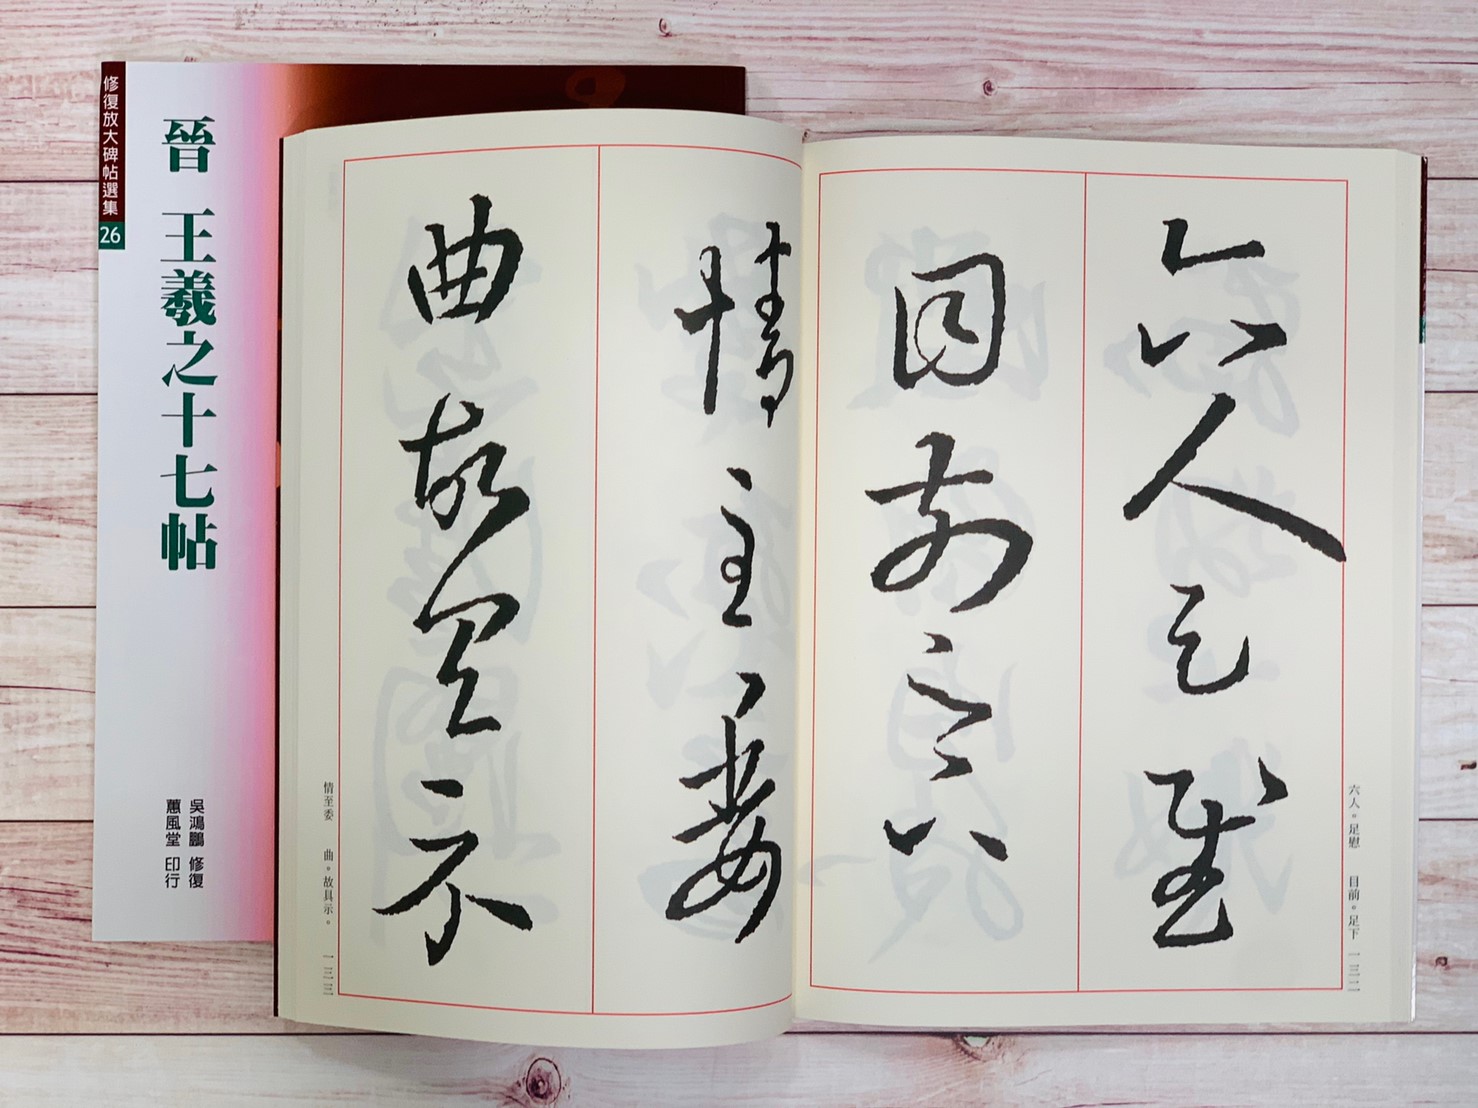 修復放大碑帖選集
26
晉 王羲之十七帖
吳鴻鵬 修復
蕙風堂 印行
六人足慰
目前足下
情至委
曲故具示
六人。足慰 目前。足下 一三二
情至委 曲。故具示。 一三三